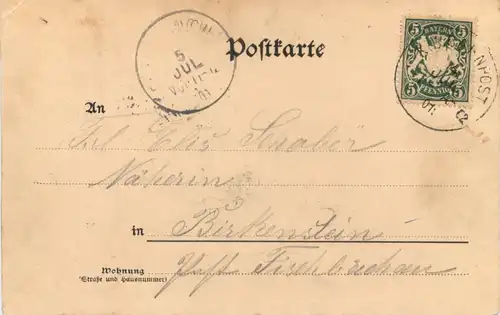 Postkarte
BAYERN
5 5
PFENNIG
5 5
5
JUL
An
Frl. Elis
Näherin
in Birkenstein
Post Fischbachau
Wohnung
(Straße und Hausnummer)